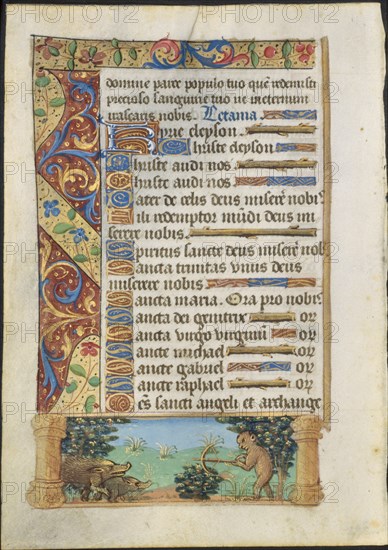 domine parce populo tuo quem redemisti
precioso sanguine tuo ne in eternum
irascaris nobis. Letania
Kyrie eleyson.
Christe eleyson
Christe audi nos
Christe audi nos
Pater de celis deus misere nobis
Fili redemptor mūdi deus mi
serere nobis.
Spiritus sancte deus misere nob
Sancta trinitas vnus deus
miserere nobis
Sancta maria. Ora pro nobis
Sancta dei genitrix or
Sancta virgo virginū or
Sancte michael or
Sancte gabriel or
Sancte raphael or
Oēs sancti angeli et archange